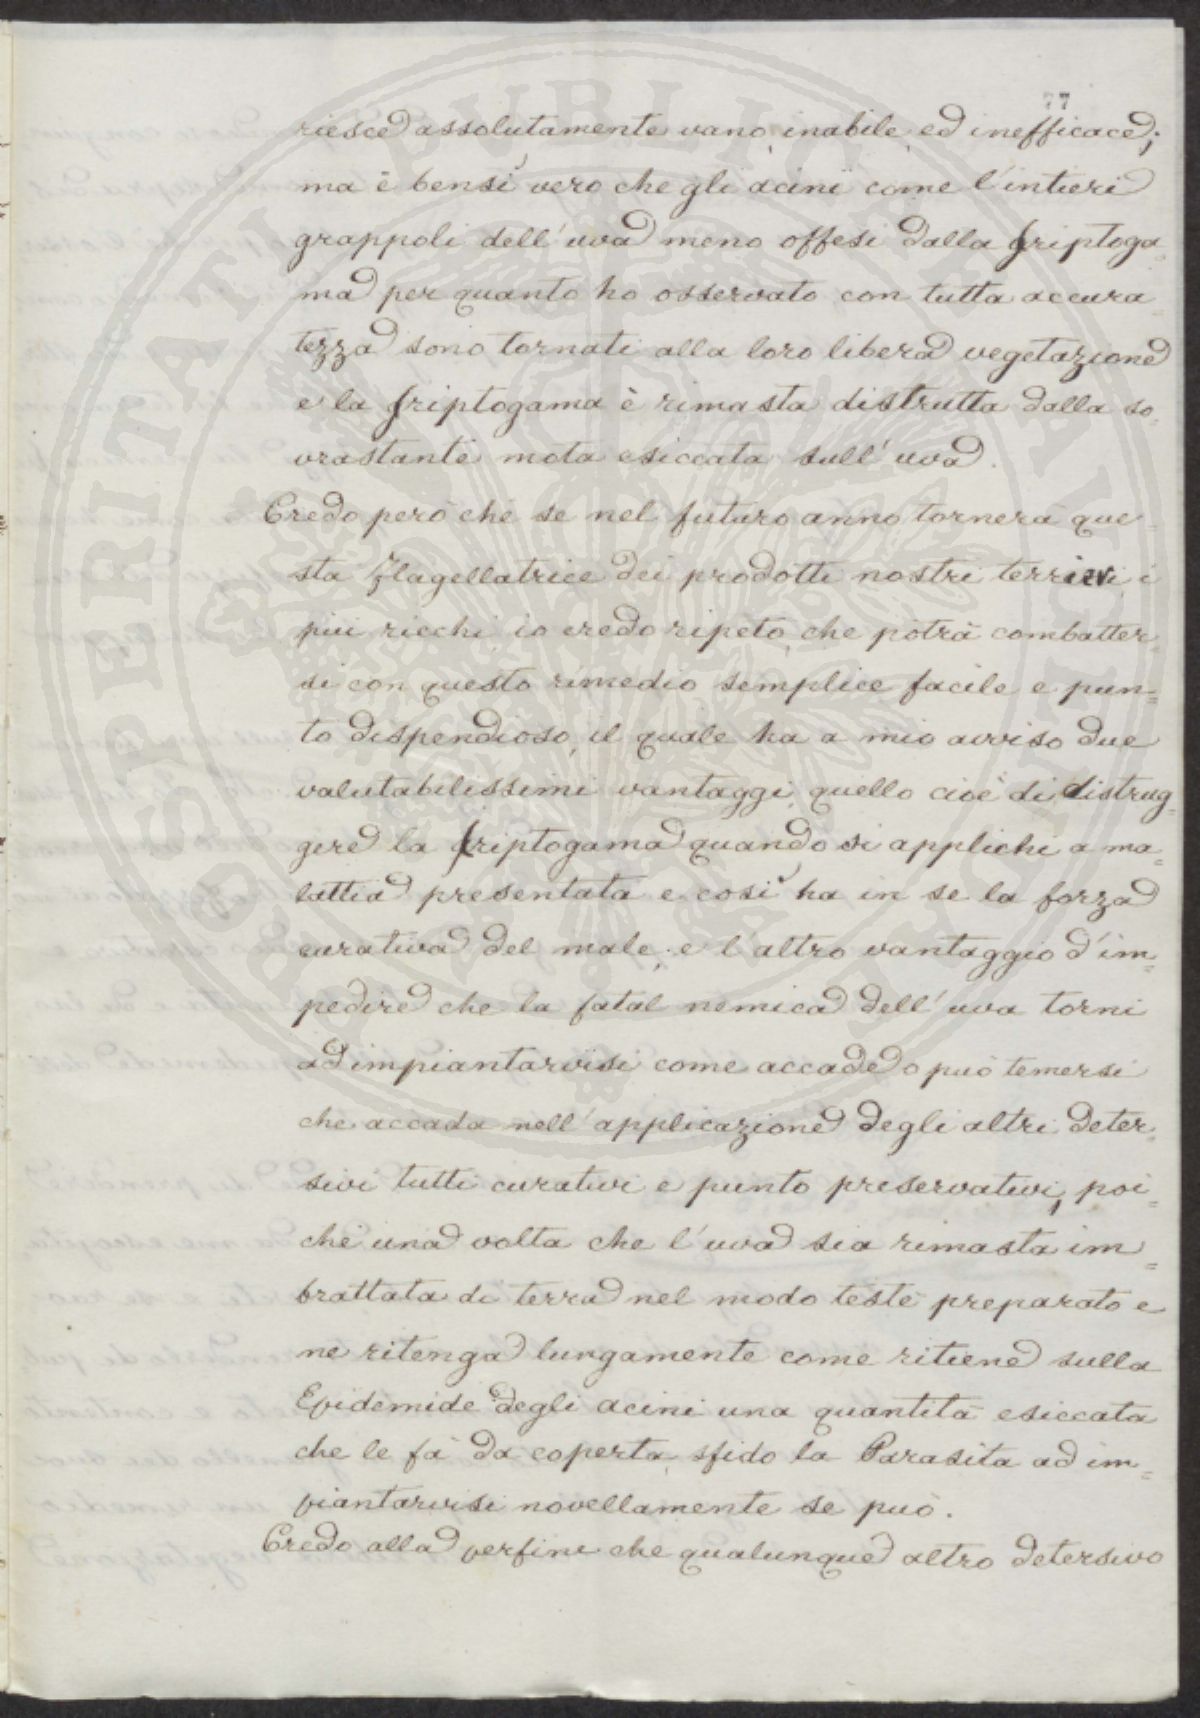 77
riesce assolutamente vano, inabile, ed inefficace;
ma è bensì vero che gli acini come l'intieri
grappoli dell'uva meno offesi dalla Criptoga=
ma per quanto ho osservato con tutta accura
tezza sono tornati alla loro libera vegetazione
e la Criptogama è rimasta distrutta dalla so=
vrastante mota esiccata sull'uva.
Credo però che se nel futuro anno tornerà que=
sta Flagellatrice dei prodotti nostri terrieri i
piu ricchi, io credo ripeto, che potrà combatter=
si con questo rimedio semplice facile e pun=
to dispendioso, il quale ha a mio avviso due
valutabilissimi vantaggi, quello cioè di distrug=
gere la Criptogama quando si applichi a ma=
lattia presentata e così ha in se la forza
curativa del male; e l'altro vantaggio d'im=
pedire che la fatal nemica dell'uva torni
ad impiantarvisi come accade o può temersi
che accada nell'applicazione degli altri deter=
sivi tutti curativi e punto preservativi, poi=
chè una volta che l'uva sia rimasta im=
brattata di terra nel modo testè preparato e
ne ritenga lungamente come ritiene sulla
Epidemide degli acini una quantità esiccata
che le fà da coperta, sfido la Parasita ad im=
piantarvisi novellamente se può.
Credo alla perfine che qualunque altro detersivo
PROSPERITATI PVBLICAE AVGENDAE